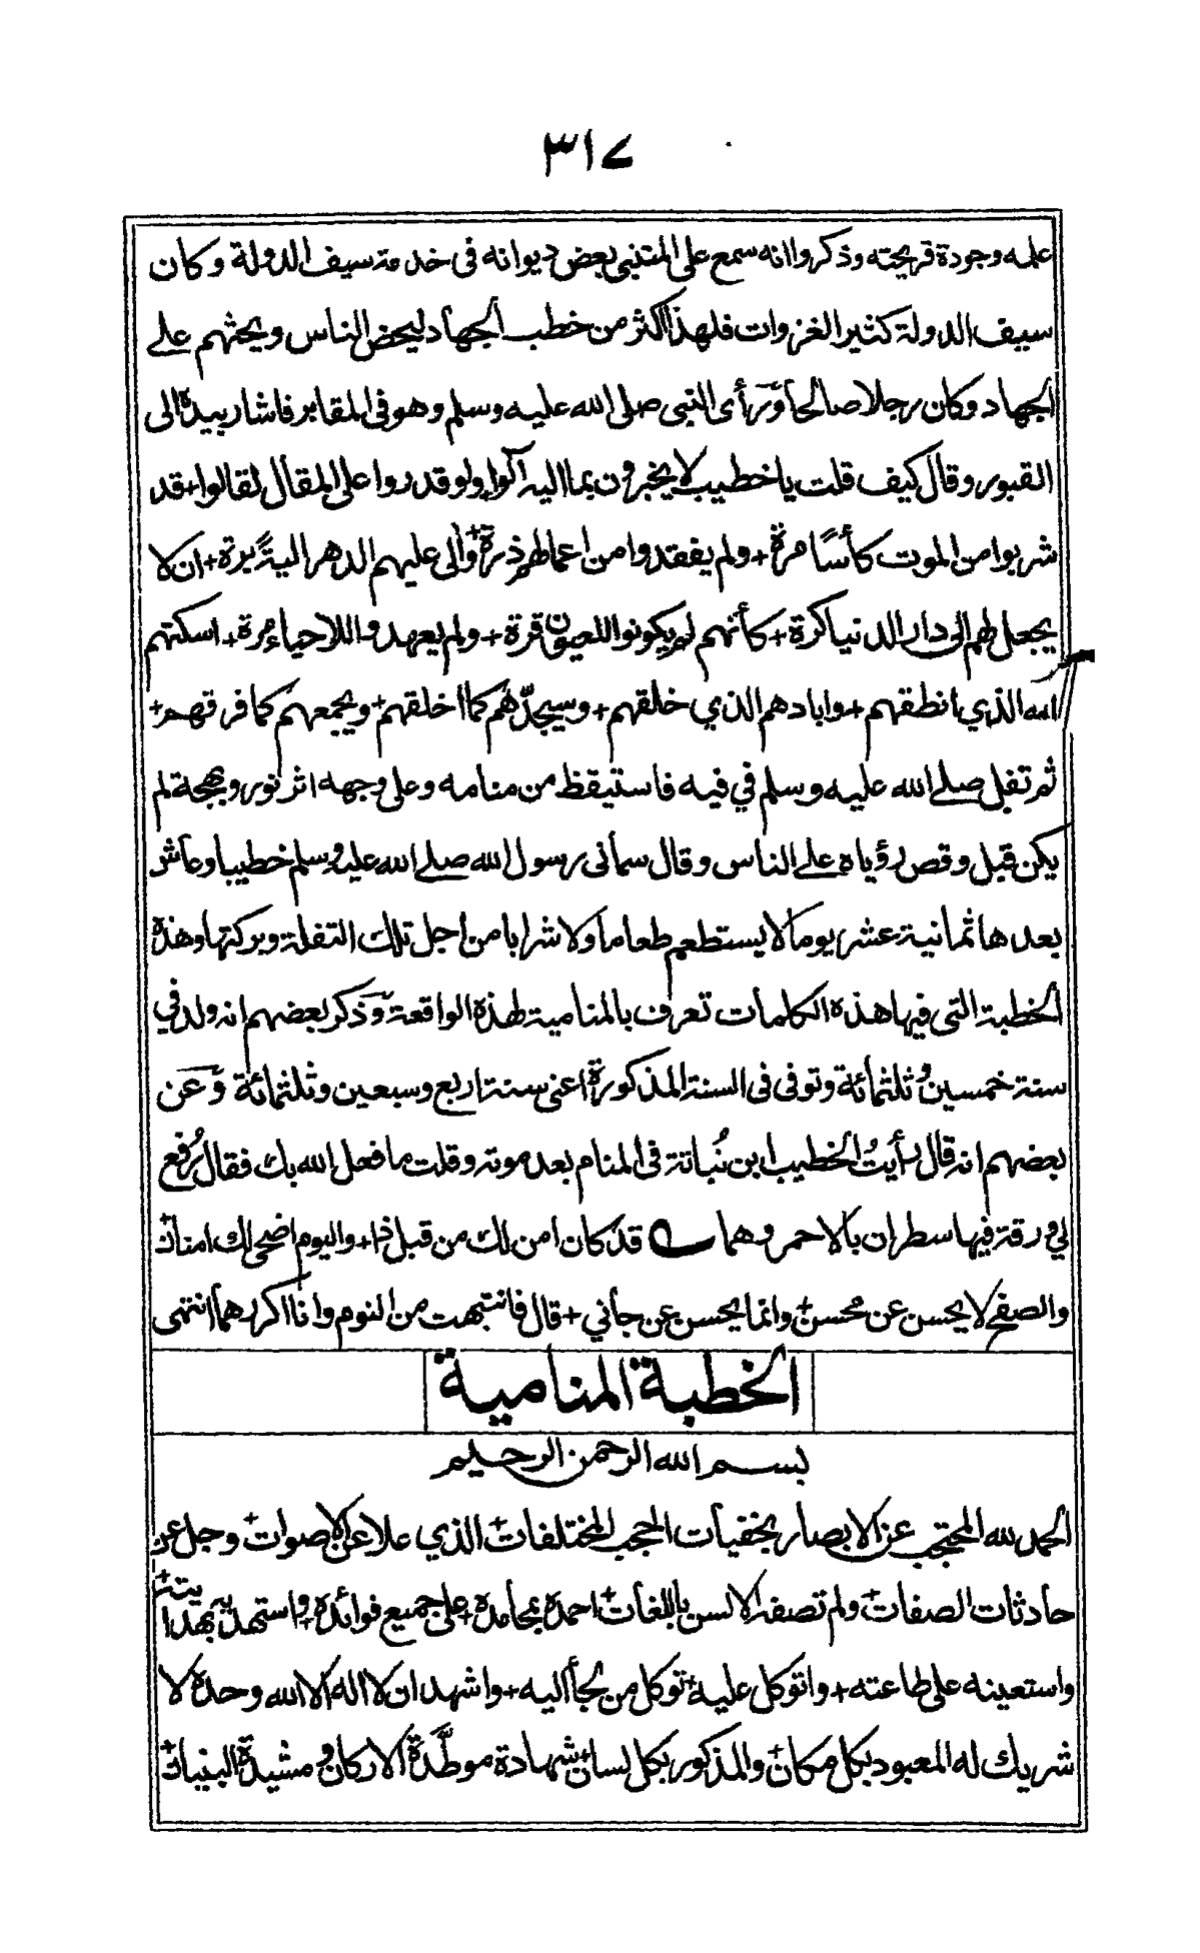 ٣١٧
علمه وجودة قريحته وذكروا انه سمع على المتنبي بعض ديوانه فى خدمة سيف الدولة وكان
سيف الدولة كثير الغزوات فلهذا اكثر من خطب الجهاد ليحض الناس ويحثهم على
الجهاد وكان رجلا صالحا ورأى النبى صلى الله عليه وسلم وهو فى المقابر فاشار بيده الى
القبور وقال كيف قلت يا خطيب لا يخبرون بما اليه آلوا ولو قدروا على المقال لقالوا+قد
شربوا من الموت كأسًا مرة+ولم يفقدوا من اعمالهم ذرة+وآلى عليهم الدهر اليةً برة+ان لا
يجعل لهم الى دار الدنيا كرة+كأنهم لم يكونوا للعيون قرة+ولم يعدوا اللاحياء مرة+اسكتهم
الله الذي انطقهم+واباد هم الذي خلقهم+وسيجدّهم كما اخلقهم+ويجمعهم كما فرقهم+
ثم تفل صلى الله عليه وسلم في فيه فاستيقظ من منامه وعلى وجهه اثر نور وبهجة لم
يكن قبل وقص رؤياه على الناس وقال سمانى رسول الله صلى الله عليه وسلم خطيبا وعاش
بعدها ثمانية عشر يوما لا يستطعم طعاما ولا شرابا من اجل تلك التفلة وبركتها وهذه
الخطبة التى فيها هذه الكلمات تعرف بالمنامية لهذه الواقعة وذكر بعضهم انه ولد في
سنة خمسين وثلثمائة وتوفى فى السنة المذكورة اعنى سنة اربع وسبعين وثلثمائة وعن
بعضهم انه قال رأيتُ الخطيب ابن نُباتة فى المنام بعد موته وقلت ما فعل الله بك فقال رُفع
لي ورقة فيها سطران بالاحمر وهما قد كان امن لك من قبل ذا+واليوم اضحى لك امنان+
والصفح لا يحسن عن محسن+وانما يحسن عن جاني+قال فانتبهت من النوم وانا اكررهما انتهى
الخطبة المنامية
بسم الله الرحمن الرحيم
الحمد لله المحتجب عن الابصار بخفيات الحجب المختلفات+الذي علا عن الاصوات+وجل عن
حادثات الصفات+ولم تصفه الالسن باللغات+احمده بمحامده+على جميع فوائده+واستهديه بهدايته+
واستعينه على طاعته+واتوكل عليه+توكل من لجأ اليه+واشهد ان لا اله الا الله وحده لا
شريك له المعبود بكل مكان+والمذكور بكل لسان+شهادة موطَّدة الاركان ومشيدة البنيان+